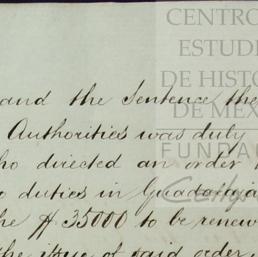 CENTRO
ESTUDI
DE HISTO
DE MÉXI
FUNDAC
and the Sentence the
Authorities was duly
ho directed an order
duties in Guadalaja
he $ 35000 to be renew
the issue of said order